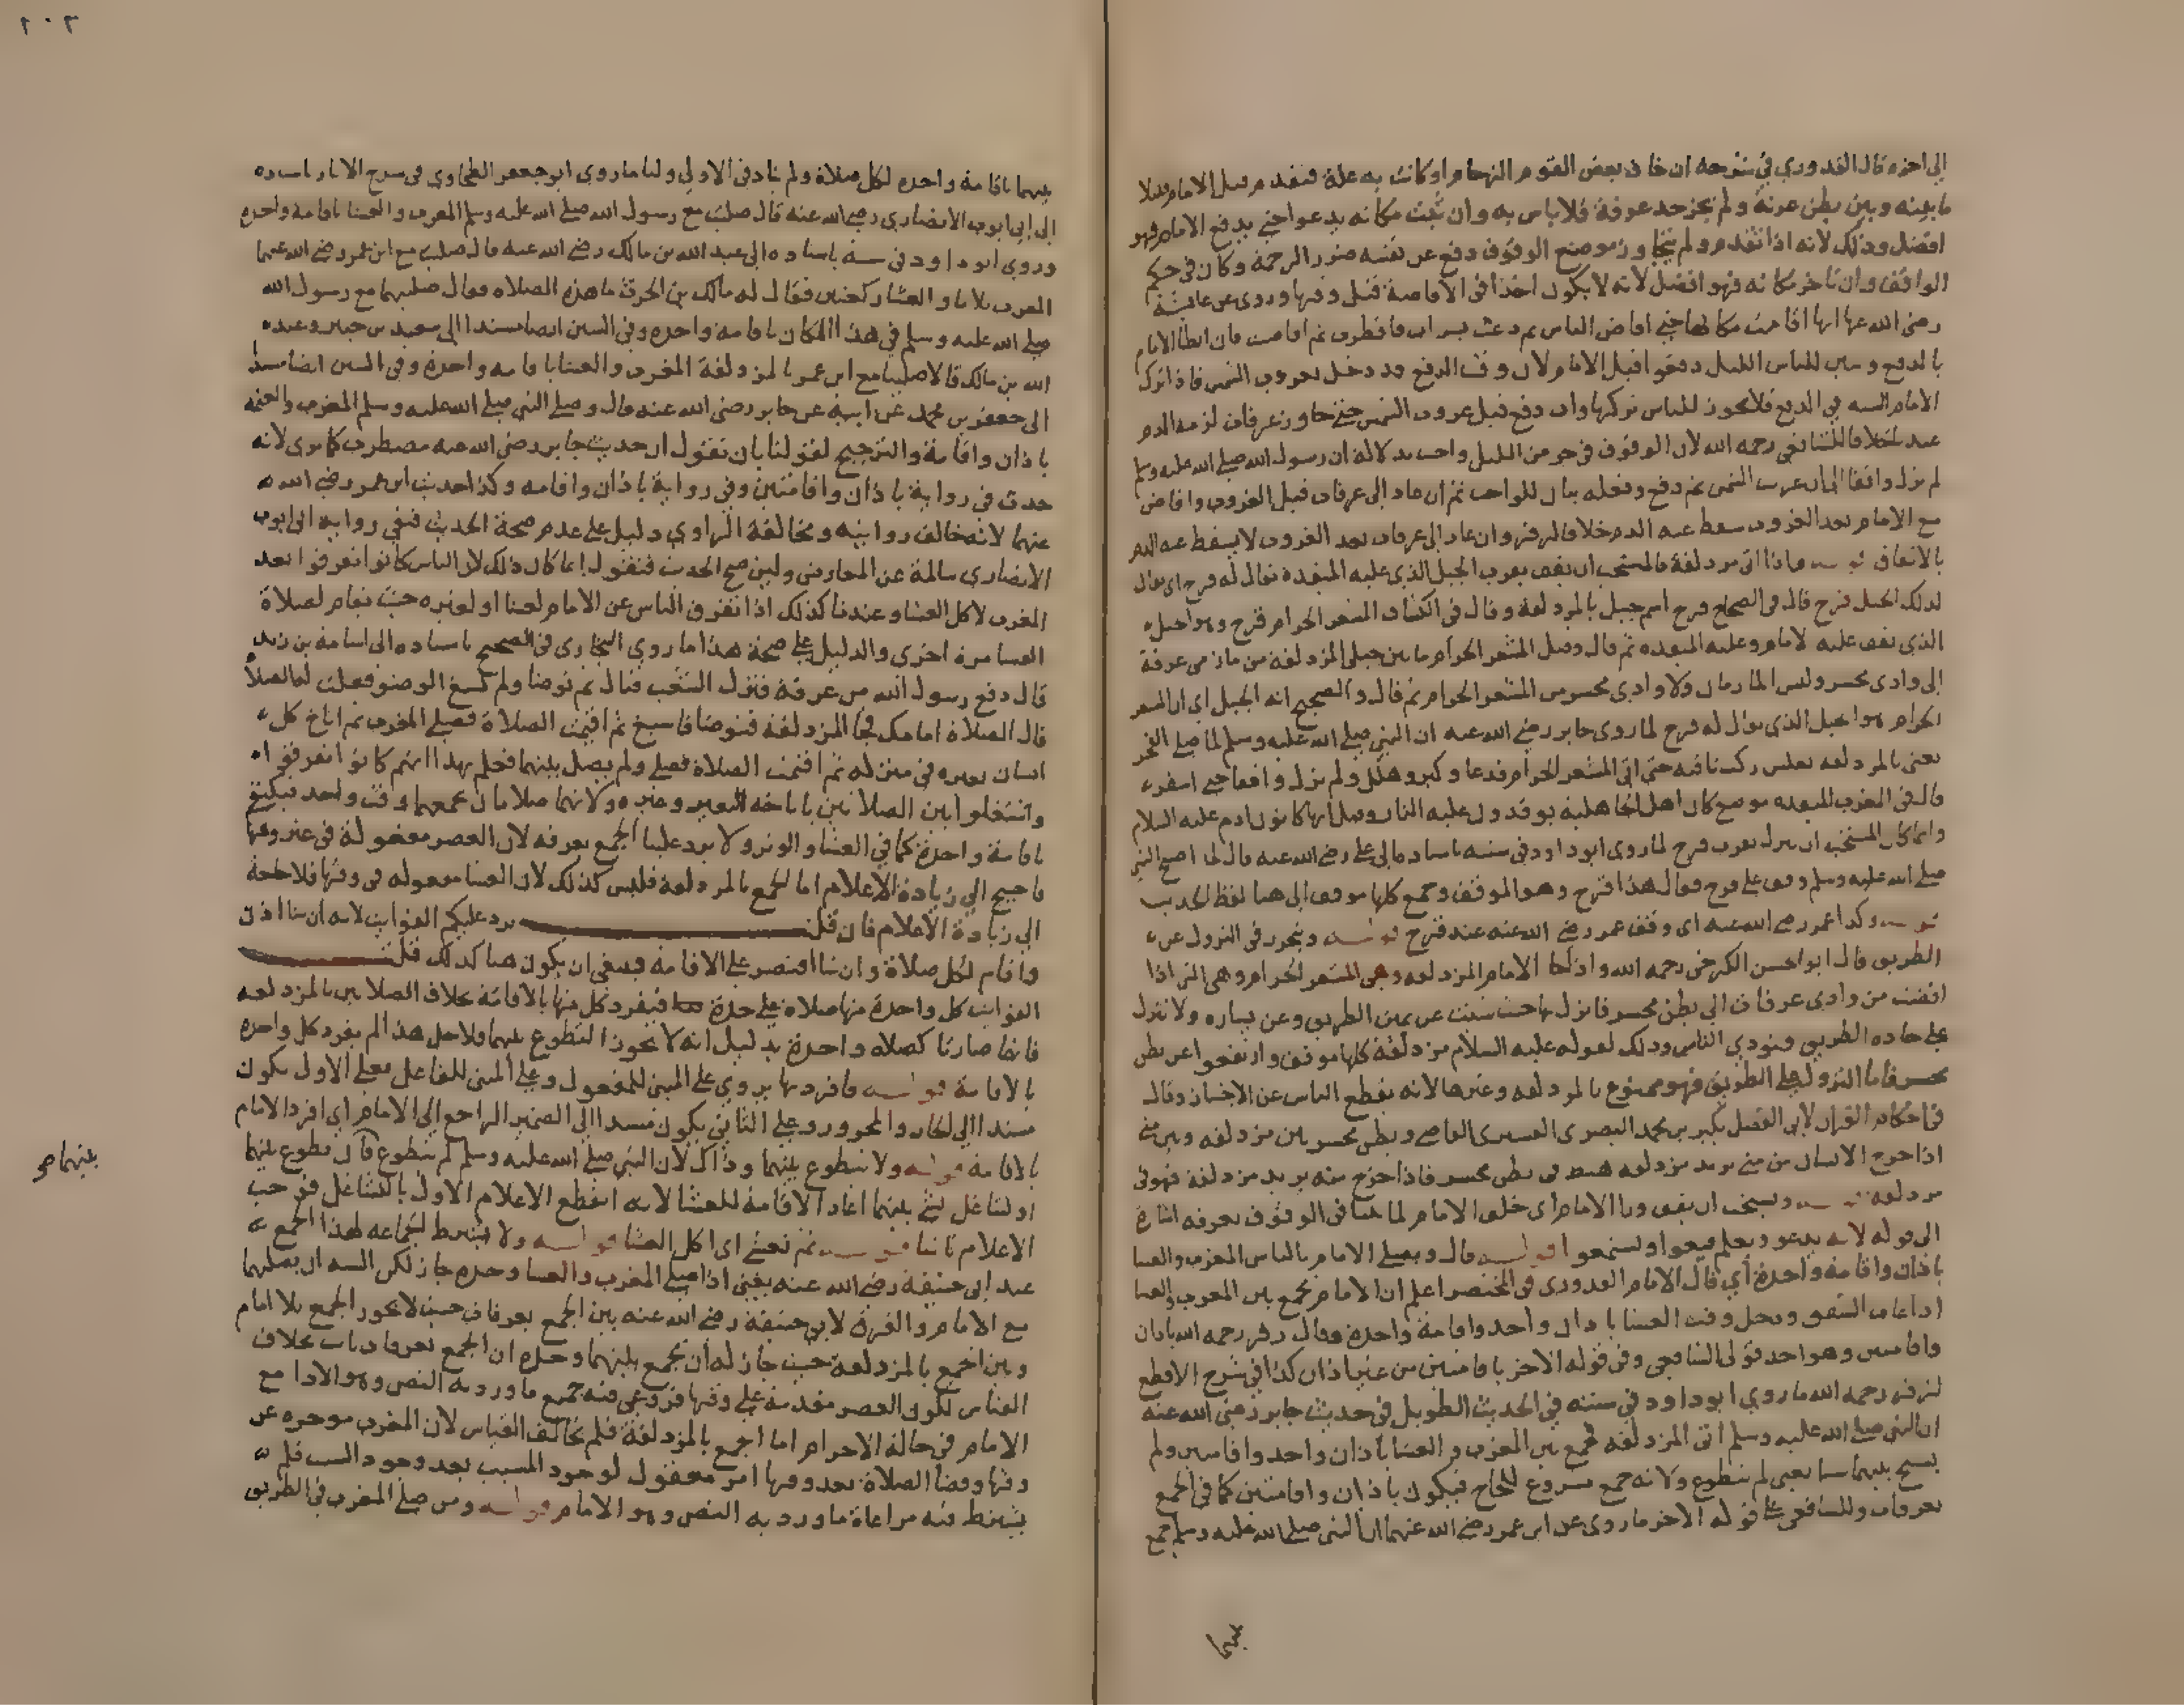 الى اخره قال القدوري في شرحه ان خاف بعض القوم الزحام او كانت به علة فتقدم قبل الامام قليلا
ما بينه وبين بطن عرنة ولم يخرج حد عرفة فلا باس به وان ثبت مكانه يدعو حتى يدفع الامام فهو
افضل وذلك لانه اذا تقدم ولم يتجاوز موضع الوقوف دفع عن نفسه ضرر الزحمة وكان في حكم
الواقف وان تاخر مكانه فهو افضل لانه لا يكون اخذا في الافاضة قبل وقتها وروى عن عائشة
رضى الله عنها انها اقامت مكانها حتى افاض الناس ثم دعت بشراب فافطرت ثم افاضت فان ابطأ الامام
بالدفع وتبين للناس الليل دفعوا قبل الامام لان وقت الدفع قد دخل بغروب الشمس فاذا ترك
الامام السنه في الدفع فلا يجوز للناس تركها وان دفع قبل غروب الشمس حتى جاوز عرفات لزمه الدم
عندنا خلافا للشافعي رحمه الله لان الوقوف في جزء من الليل واجب بدلالة ان رسول الله صلى الله عليه وسلم
لم يزل واقفا الى ان غربت الشمس ثم دفع وفعله بيان للواجب ثم ان عاد الى عرفات قبل الغروب وافاض
مع الامام بعد الغروب سقط عنه الدم خلافا لزفر وان عاد الى عرفات بعد الغروب لا يسقط عنه الدم
بالاتفاق قوله واذا اتى مزدلفة فالمستحب ان يقف بقرب الجبل الذي عليه الميقدة يقال له قزح اى يقال
لذلك الجبل قزح قال في الصحاح قزح اسم جبل بالمزدلفة وقال في الكشاف المشعر الحرام قزح وهو الجبل
الذي يقف عليه الامام وعليه الميقده ثم قال وقيل المشعر الحرام ما بين جبلى المزدلفة من مازمى عرفة
إلى وادى محسر وليس المازمان ولا وادى محسر من المشعر الحرام ثم قال والصحيح انه الجبل اى ان المشعر
الحرام هو الجبل الذي يقال له قزح لما روى جابر رضى الله عنه ان النبي صلى الله عليه وسلم لما صلى الفجر
يعنى بالمزدلفه بغلس ركب ناقته حتى اتى المشعر الحرام فدعا وكبر وهلل ولم يزل واقفا حتى اسفر
قال في المغرب الميقده موضع كان اهل الجاهلية يوقدون عليه النار وقيل انها كانون ادم عليه السلام
وانما كان المستحب ان ينزل بقرب قزح لما روى ابو داود في سننه باسناده الى علي رضى الله عنه قال لما اصبح النبي
صلى الله عليه وسلم وقف على قزح فقال هذا قزح وهو الموقف وجمع كلها موقف الى هنا لفظ الحديث
قوله وكذا عمر رضى الله عنه اى وقف عمر رضى الله عنه عند قزح قوله ويتحرز في النزول عن
الطريق قال ابو الحسن الكرخي رحمه الله واذا جا الامام المزدلفه وهي المشعر الحرام وهى التى اذا
افضت من وادى عرفات الى بطن محسر فانزل بها حيث شئت عن يمين الطريق وعن يساره ولا تنزل
على جاده الطريق فتوذي الناس وذلك لقوله عليه السلام مزدلفة كلها موقف وارتفعوا عن بطن
محسر فاما النزول على الطريق فهو ممنوع بالمزدلفه وغيرها لانه يقطع الناس عن الاجتياز وقال
في احكام القران لابي الفضل بكير بن محمد البصرى القشيرى القاضي وبطن محسر بين مزدلفه وبين منى
اذا خرج الانسان من منى يريد مزدلفه هبط في بطن محسر فاذا خرج منه يريد مزدلفة فهو في
مزدلفه قوله ويستحب ان يقف ورا الامام اى خلف الامام لما بينا في الوقوف بعرفه اشارة
الى قوله لانه يدعو ويعلم فيعوا ويستمعوا قوله قال ويصلي الامام بالناس المغرب والعشا
باذان واقامة واحدة اي قال الامام القدورى في المختصر اعلم ان الامام يجمع بين المغرب والعشا
اذا غاب الشفق ودخل وقت العشا باذان واحد واقامة واحدة وقال زفر رحمه الله باذان
واقامتين وهو احد قولى الشافعي وفي قوله الاخر باقامتين من غير اذان كذا في شرح الاقطع
لزفر رحمه الله ما روي ابو داود في سننه في الحديث الطويل في حديث جابر رضى الله عنه
ان النبي صلى الله عليه وسلم اتى المزدلفه فجمع بين المغرب والعشا باذان واحد واقامتين ولم
يسبح بينهما شيا يعنى لم يتطوع ولانه جمع مشروع للحاج فيكون باذان واقامتين كما في الجمع
بعرفات وللشافعي على قوله الاخر ما روى عن ابن عمر رضى الله عنهما ان النبي صلى الله عليه وسلم جمع
بينهما
١٠٢
بينهما باقامة واحده لكل صلاة ولم يناد في الاولى ولنا ما روى ابو جعفر الطحاوي في شرح الاثار باسناده
الى ابي ايوب الانصاري رضى الله عنه قال صليت مع رسول الله صلى الله عليه وسلم المغرب والعشا باقامة واحده
وروي ابو داود في سننه باسناده الى عبد الله بن مالك رضى الله عنه قال صليت مع ابن عمر رضى الله عنهما
المغرب ثلاثا والعشا ركعتين فقال له مالك بن الحرث ما هذه الصلاه فقال صليتهما مع رسول الله
صلى الله عليه وسلم في هذا المكان باقامة واحده وفي السنن ايضا مسندا الى سعيد بن جبير وعبد
الله بن مالك قالا صلينا مع ابن عمر بالمزدلفة المغرب والعشا باقامه واحدة وفي السنن ايضا مسندا
الى جعفر بن محمد عن ابيه عن جابر رضى الله عنه قال وصلى النبي صلى الله عليه وسلم المغرب والعتمة
باذان واقامة والترجيح لقولنا بان نقول ان حديث جابر رضى الله عنه مضطرب كما ترى لانه
حدث في رواية باذان واقامتين وفي رواية باذان واقامه وكذا حديث ابن عمر رضى الله
عنهما لانه خالف روايته ومخالفة الراوي دليل على عدم صحة الحديث فبقي رواية ابى ايوب
الانصاري سالمة عن المعارض ولئن صح الحديث فنقول انما كان ذلك لان الناس كانوا تفرقوا بعد
المغرب لاكل العشا وعندنا كذلك اذا تفرق الناس عن الامام لعشا او لغيره حيث يقام لصلاة
العشا مرة اخرى والدليل على صحة هذا ما روي البخارى في الصحيح باسناده الى اسامة بن زيد
قال دفع رسول الله من عرفة فنزل الشعب فبال ثم توضا ولم يسبغ الوضو فقلت له الصلاة
قال الصلاة امامك فجا المزدلفة فتوضا فاسبغ ثم اقيمت الصلاة فصلى المغرب ثم اناخ كل
انسان بعيره في منزله ثم اقيمت الصلاة فصلى ولم يصل بينهما فعلم بهذا انهم كانوا تفرقوا
واشتغلوا بين الصلاتين باناخه البعير وغيره ولانهما صلاتان يجمعهما وقت واحد فيكتفى
باقامة واحدة كما في العشا والوتر ولا يرد علينا الجمع بعرفه لان العصر مفعولة في غير وقتها
فاحتيج الى زيادة الاعلام اما الجمع بالمزدلفة فليس كذلك لان العشا مفعوله في وقتها فلا حاجة
الى زيادة الاعلام فان قلت يرد عليكم الفوايت لانه ان شا اذن
واقام لكل صلاة وان شا اقتصر على الاقامة فينبغى ان يكون هنا كذلك قلت
الفوايت كل واحدة منها صلاة على حدة فيفرد كل منها بالاقامة بخلاف الصلاتين بالمزدلفه
فانها صارتا كصلاه واحدة بدليل انه لا يجوز التطوع بينهما فلاجل هذا لم يفرد كل واحده
بالاقامة قوله فافرد بها يروي على المبنى للمفعول وعلى المبنى للفاعل فعلى الاول يكون
مسندا الى الجار والمجرور وعلى الثاني يكون مسندا الى الضمير الراجع الى الامام اي افرد الامام
بالاقامة قوله ولا يتطوع بينهما وذاك لان النبي صلى الله عليه وسلم لم يتطوع فان تطوع بينهما
او تشاغل بشئ بينهما اعاد الاقامة للعشا لانه انقطع الاعلام الاول بالتشاغل فوجب
الاعلام ثانيا قوله ثم تعشى اى اكل العشا قوله ولا يشترط الجماعه لهذا الجمع
عند ابى حنيفة رضى الله عنه يعنى اذا صلى المغرب والعشا وحده جاز لكن السنه ان يصليهما
مع الامام والفرق لابى حنيفة رضى الله عنه بين الجمع بعرفات حيث لا يجوز الجمع بلا امام
وبين الجمع بالمزدلفة حيث جاز له ان يجمع بينهما وحده ان الجمع بعرفات ثابت بخلاف
القياس لكون العصر مقدمة على وقتها فروعى فيه جميع ما ورد به النص وهو الادا مع
الامام في حالة الاحرام اما الجمع بالمزدلفة فلم يخالف القياس لان المغرب موخره عن
وقتها وقضا الصلاة بعد وقتها امر معقول لوجود المسبب بعد وجود السبب فلم
يشترط فيه مراعاة ما ورد به النص وهو الامام قوله ومن صلى المغرب في الطريق
بينهما صح